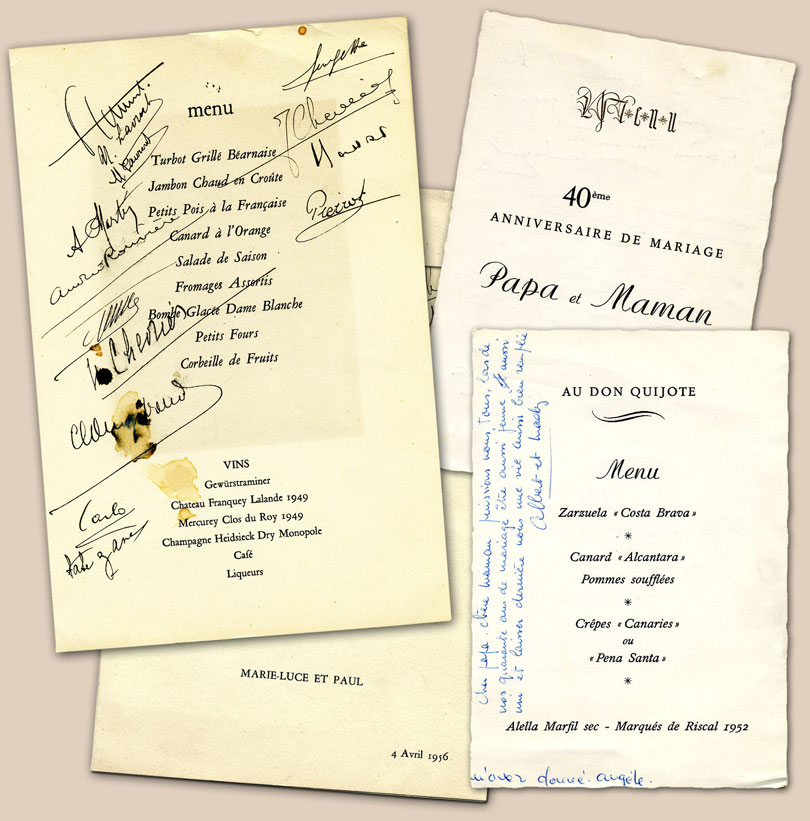 menu
Turbot Grillé Béarnaise
Jambon Chaud en Croûte
Petits Pois à la Française
Canard à l'Orange
Salade de Saison
Fromages Assortis
Bombe Glacée Dame Blanche
Petits Fours
Corbeille de Fruits
VINS
Gewürstraminer
Chateau Franquey Lalande 1949
Mercurey Clos du Roy 1949
Champagne Heidsieck Dry Monopole
Café
Liqueurs
Pierrot
Carlo
MARIE-LUCE ET PAUL
4 Avril 1956
Menu
40ème
ANNIVERSAIRE DE MARIAGE
Papa et Maman
AU DON QUIJOTE
Menu
Zarzuela « Costa Brava »
Canard « Alcantara »
Pommes soufflées
Crêpes « Canaries »
ou
« Pena Santa »
Alella Marfil sec - Marqués de Riscal 1952
Cher papa. Chère maman puissions nous, tous, lors de
nos quarante ans de mariage être aussi jeune et aussi
uni et laisser derrière nous une vie aussi bien remplie
Albert et Mady
m'avez donné. Angèle.